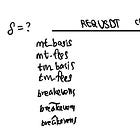 δ = ? REQUSDT
mt_basis
mt_fees
tm_basis
tm_fees
breakevens
breakevens
breakevens